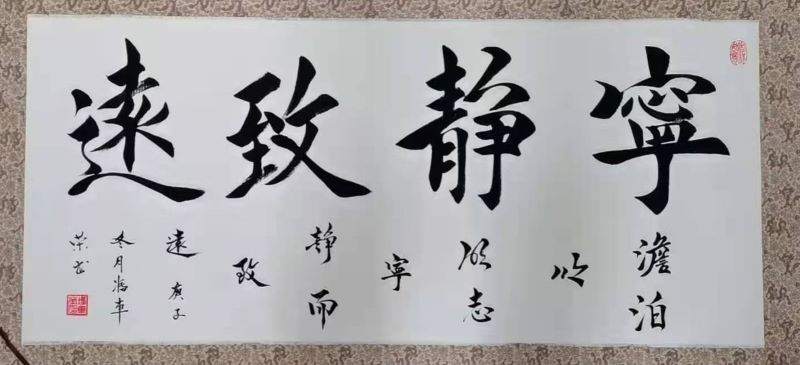 寧靜致遠
澹泊
以
明志
寧
靜而
致
遠 庚子
冬月
榮書